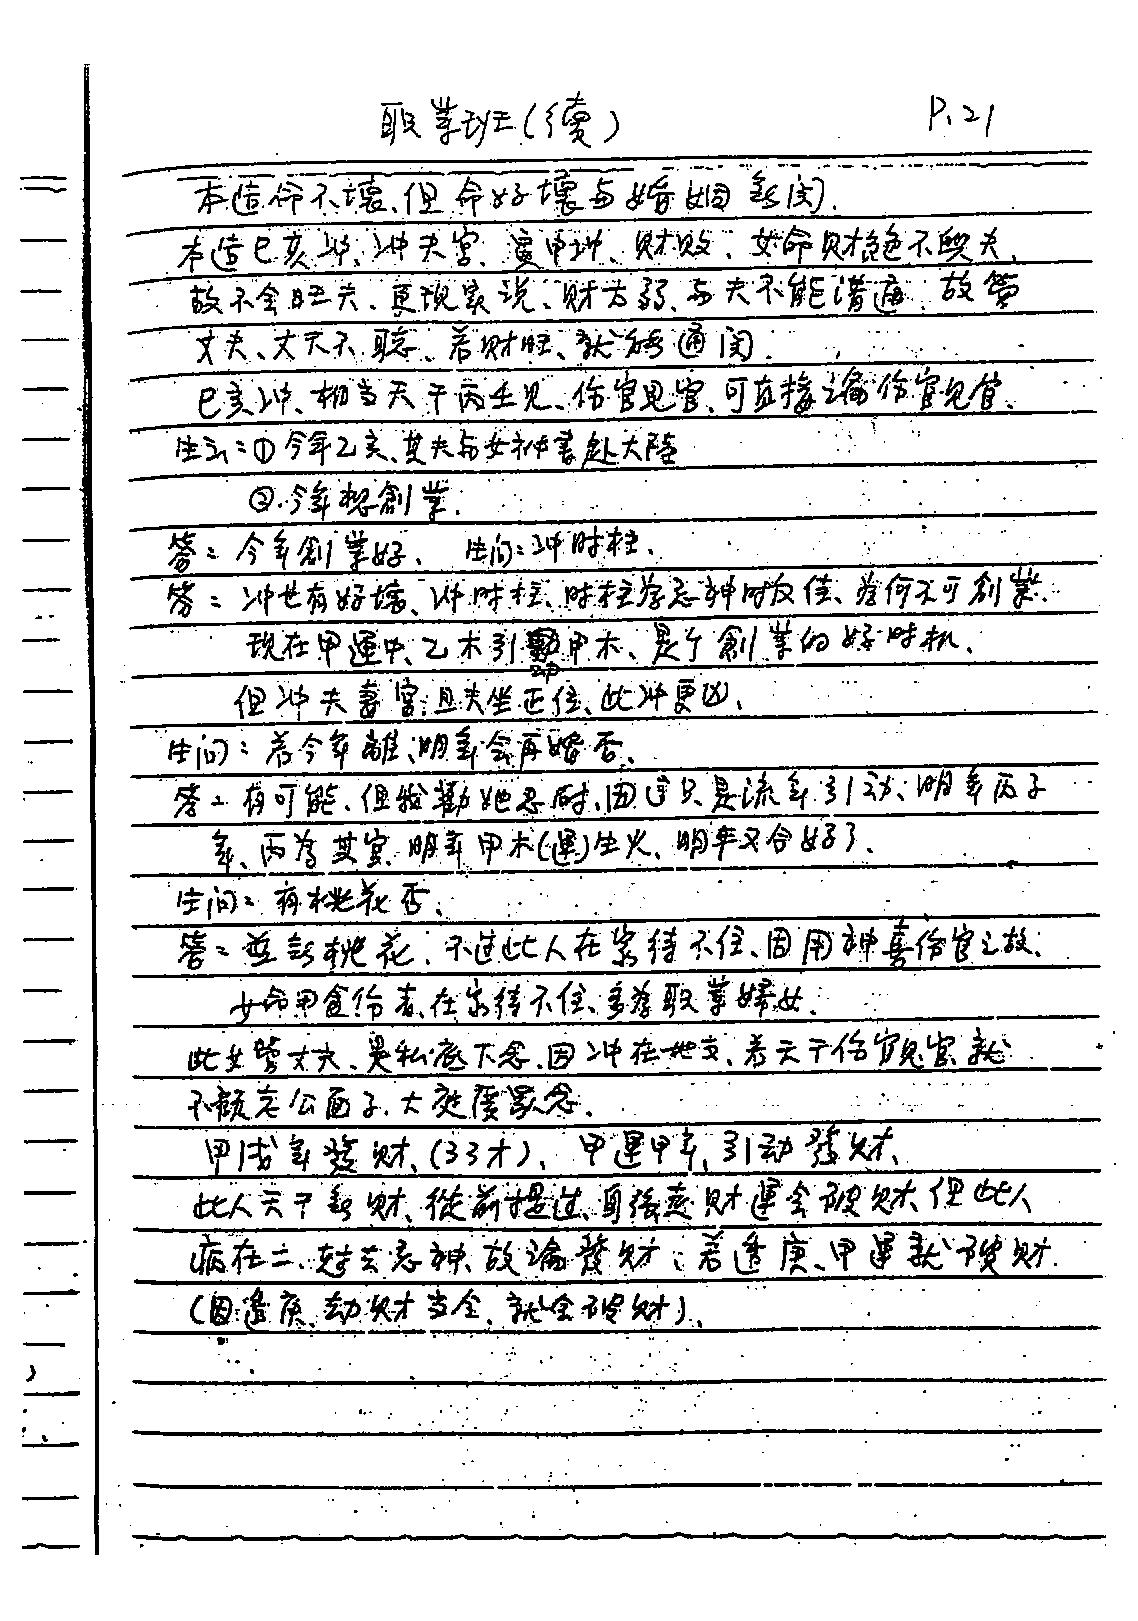 职業班(續) P.21
本造命不壞、但命好壞与婚姻無関.
本造巳亥冲、冲夫宮、寅申冲、財敗、女命財絕不興夫、
故不会旺夫、更現象说、財太弱、与夫不能溝通、故管
丈夫、丈夫不聽、若財旺、就能通関.
巳亥冲、相当天干丙壬见、伤官见官、可直接論伤官见官.
生云:①今年乙亥、其夫与女秘書赴大陸
②.今年想創業.
答:今年創業好、 生问:冲时柱.
答:冲也有好壞、冲时柱、时柱为忌神时反佳、为何不可創業.
现在甲運中、乙木引動甲木、是个創業的好时机.
但冲夫妻宮、且夫坐正位、此冲更凶.
生问:若今年離、明年会再婚否.
答:有可能、但我勸她忍耐、因这只是流年引动、明年丙子
年、丙为其官、明年甲木(運)生火、明年又合好了.
生问:有桃花否.
答:並無桃花、不过此人在家待不住、因用神喜伤官之故.
女命用食伤者、在家待不住、多为职業婦女.
此女管丈夫、是私底下念、因冲在地支、若天干伤官见官、就
不顧老公面子、大庭廣眾念.
甲戌年發財、(33才)、甲運甲年、引动發財、
此人天干無財、從前提过、身強走財運会破財、但此人
病在二、尅去忌神、故論發財;若透庚、甲運就破財.
(因透庚、劫財当令、就会破財).